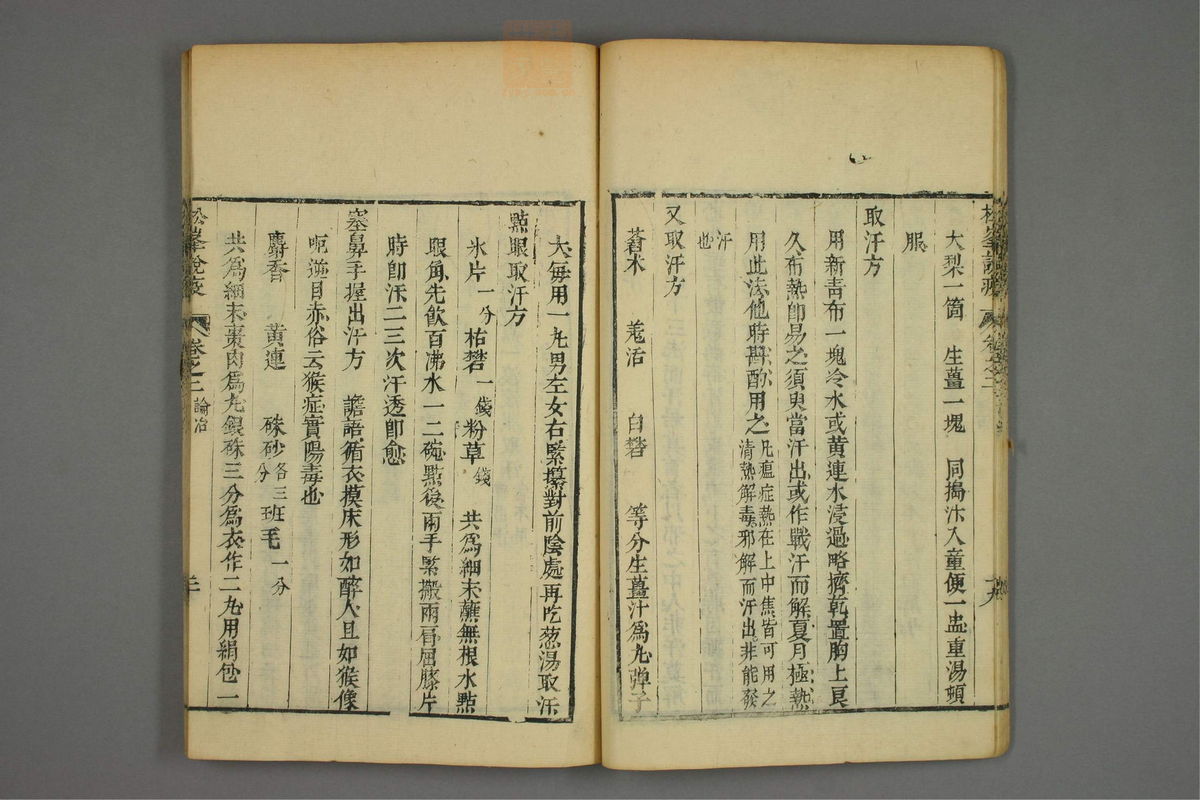 大梨一箇　生薑一塊　同搗汁入童便一盅重湯頓
服
取汗方
用新青布一塊冷水或黃連水浸過略擠乾置胸上良
久布熱即易之須臾當汗出或作戰汗而解夏月極熱
用此法他時斟酌用之凡瘟症熱在上中焦皆可用之
清熱解毒邪解而汗出非能發
汗
也
又取汗方
蒼术　羗活　白礬　等分生薑汁為丸彈子
大每用一丸男左女右緊攥對前陰處再吃葱湯取汗
點眼取汗方
氷片一分　枯礬一錢　粉草一錢　共為細末蘸無根水點
眼角先飲百沸水一二碗點後兩手緊搬兩肩屈膝片
時即汗二三次汗透即愈
塞鼻手握出汗方　譫語循衣摸床形如醉人且如猴像
呃逆目赤俗云猴症實陽毒也
麝香　黃連　硃砂各三分　班毛一分
共為細末棗肉為丸銀硃三分為衣作二丸用絹包一
松峯說疫　卷之三　論治